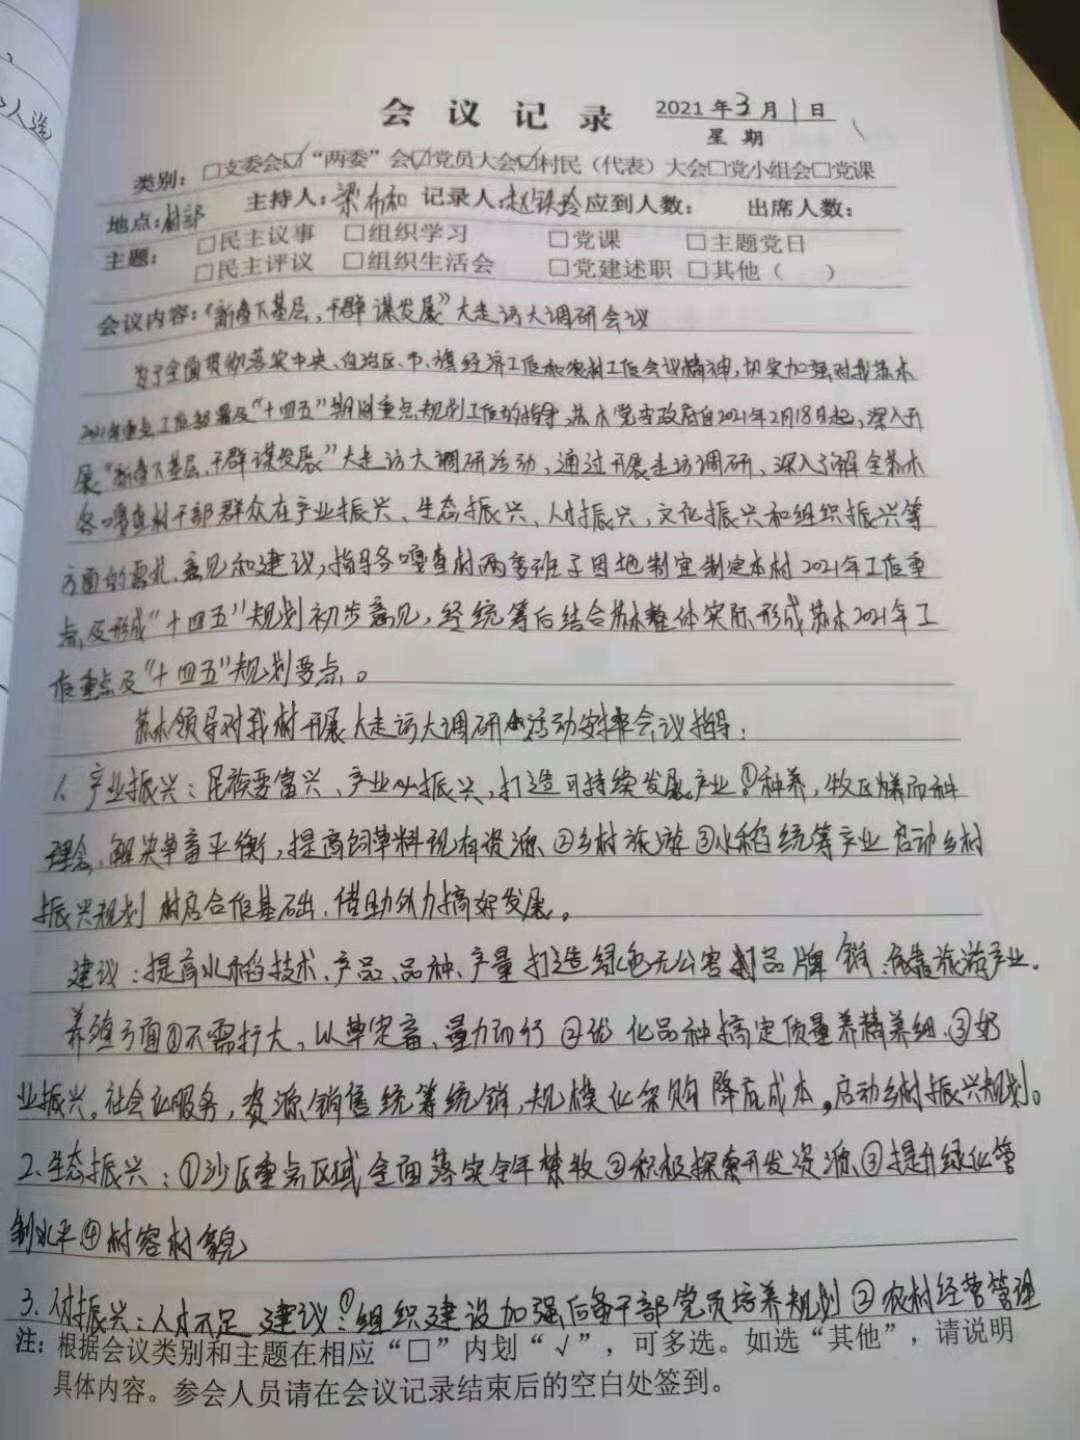 人选
会议记录
2021年3月1日
星期
类别：□支委会☑“两委”会☑党员大会☑村民（代表）大会□党小组会□党课
地点：村部 主持人：梁布和 记录人：赵铁玲 应到人数： 出席人数：
主题： □民主议事 □组织学习 □党课 □主题党日
□民主评议 □组织生活会 □党建述职 □其他（ ）
会议内容：“新春下基层，干群谋发展”大走访大调研会议
为了全面贯彻落实中央、自治区、市、旗经济工作和农村工作会议精神，切实加强对我苏木
2021年重点工作部署及“十四五”期间重点规划工作的指导，苏木党委政府自2021年2月18日起，深入开
展“新春下基层，干群谋发展”大走访大调研活动，通过开展走访调研，深入了解全苏木
各嘎查村干部群众在产业振兴、生态振兴、人才振兴，文化振兴和组织振兴等
方面的需求、意见和建议，指导各嘎查村两委班子因地制宜制定本村2021年工作重
点，及形成“十四五”规划初步意见，经统筹后结合苏木整体实际，形成苏木2021年工
作重点及“十四五”规划要点。
苏木领导对我村开展大走访大调研活动安排会议指导：
1、产业振兴：民族要富兴、产业必振兴，打造可持续发展产业①种养，牧区为养而种
理念，解决草畜平衡，提高饲草料现有资源、②乡村旅游③水稻统筹产业 启动乡村
振兴规划 村后合作基础，借助外力搞好发展。
建议：提高水稻技术、产品、品种、产量 打造绿色无公害 打品牌 销：依靠旅游产业。
养殖方面①不需扩大，以草定畜、量力而行 ②优化品种搞定质量养精养细 ③奶
业振兴。社会化服务，资源销售统筹统销，规模化采购 降底成本，启动乡村振兴规划。
2、生态振兴：①沙区重点区域全面落实全年禁牧 ②积极探索开发资源、③提升绿化管
制水平④村容村貌
3、人才振兴：人才不足 建议：①组织建设加强后备干部党员培养规划 ②农村经营管理
注：根据会议类别和主题在相应“□”内划“√”，可多选。如选“其他”，请说明
具体内容。参会人员请在会议记录结束后的空白处签到。